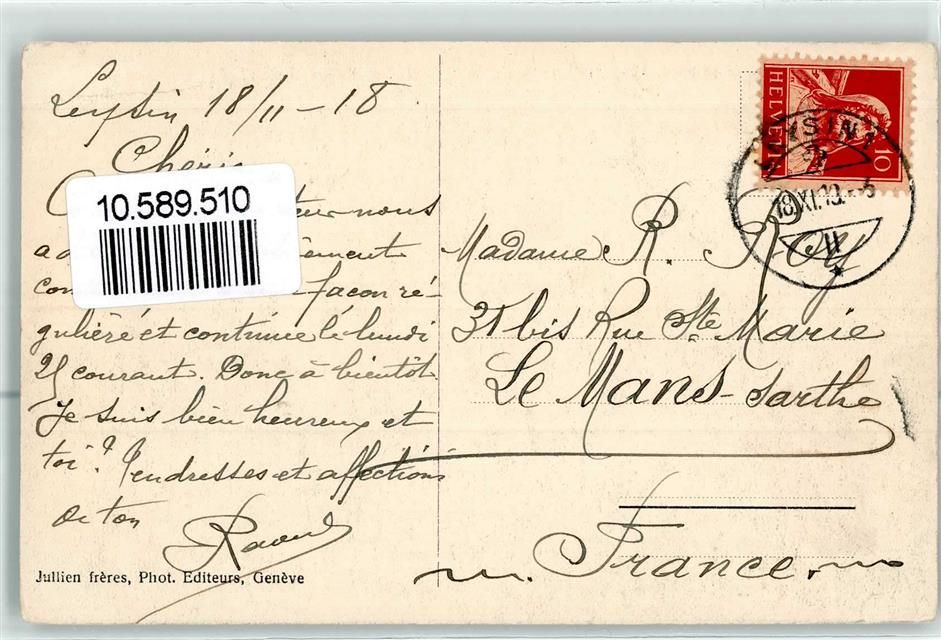 Leysin 18/11-18
Chérie
10.589.510
nous
a
façon ré-
gulière et continue le lundi
25 courant. Donc à bientôt
je suis bien heureux et
toi? Tendresses et affections
de ton
Raoul
Jullien frères, Phot. Editeurs, Genève
HELVETIA
10
LEYSIN 1
18.XI.18.
Madame R. Roy
31 bis Rue Ste Marie
Le Mans - Sarthe
France